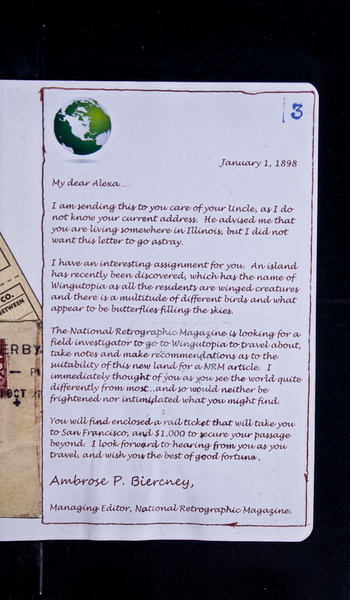 3
January 1, 1898
My dear Alexa...
I am sending this to you care of your Uncle, as I do
not know your current address. He advised me that
you are living somewhere in Illinois, but I did not
want this letter to go astray.
I have an interesting assignment for you. An island
has recently been discovered, which has the name of
Wingutopia as all the residents are winged creatures
and there is a multitude of different birds and what
appear to be butterflies filling the skies.
The National Retrographic Magazine is looking for a
field investigator to go to Wingutopia to travel about,
take notes and make recommendations as to the
suitability of this new land for a NRM article. I
immediately thought of you as you see the world quite
differently from most...and so would neither be
frightened nor intimidated what you might find.
You will find enclosed a rail ticket that will take you
to San Francisco, and $1,000 to secure your passage
beyond. I look forward to hearing from you as you
travel, and wish you the best of good fortune.
Ambrose P. Bierceney,
Managing Editor, National Retrographic Magazine.
CO.
BETWEEN
ERBY
OCT